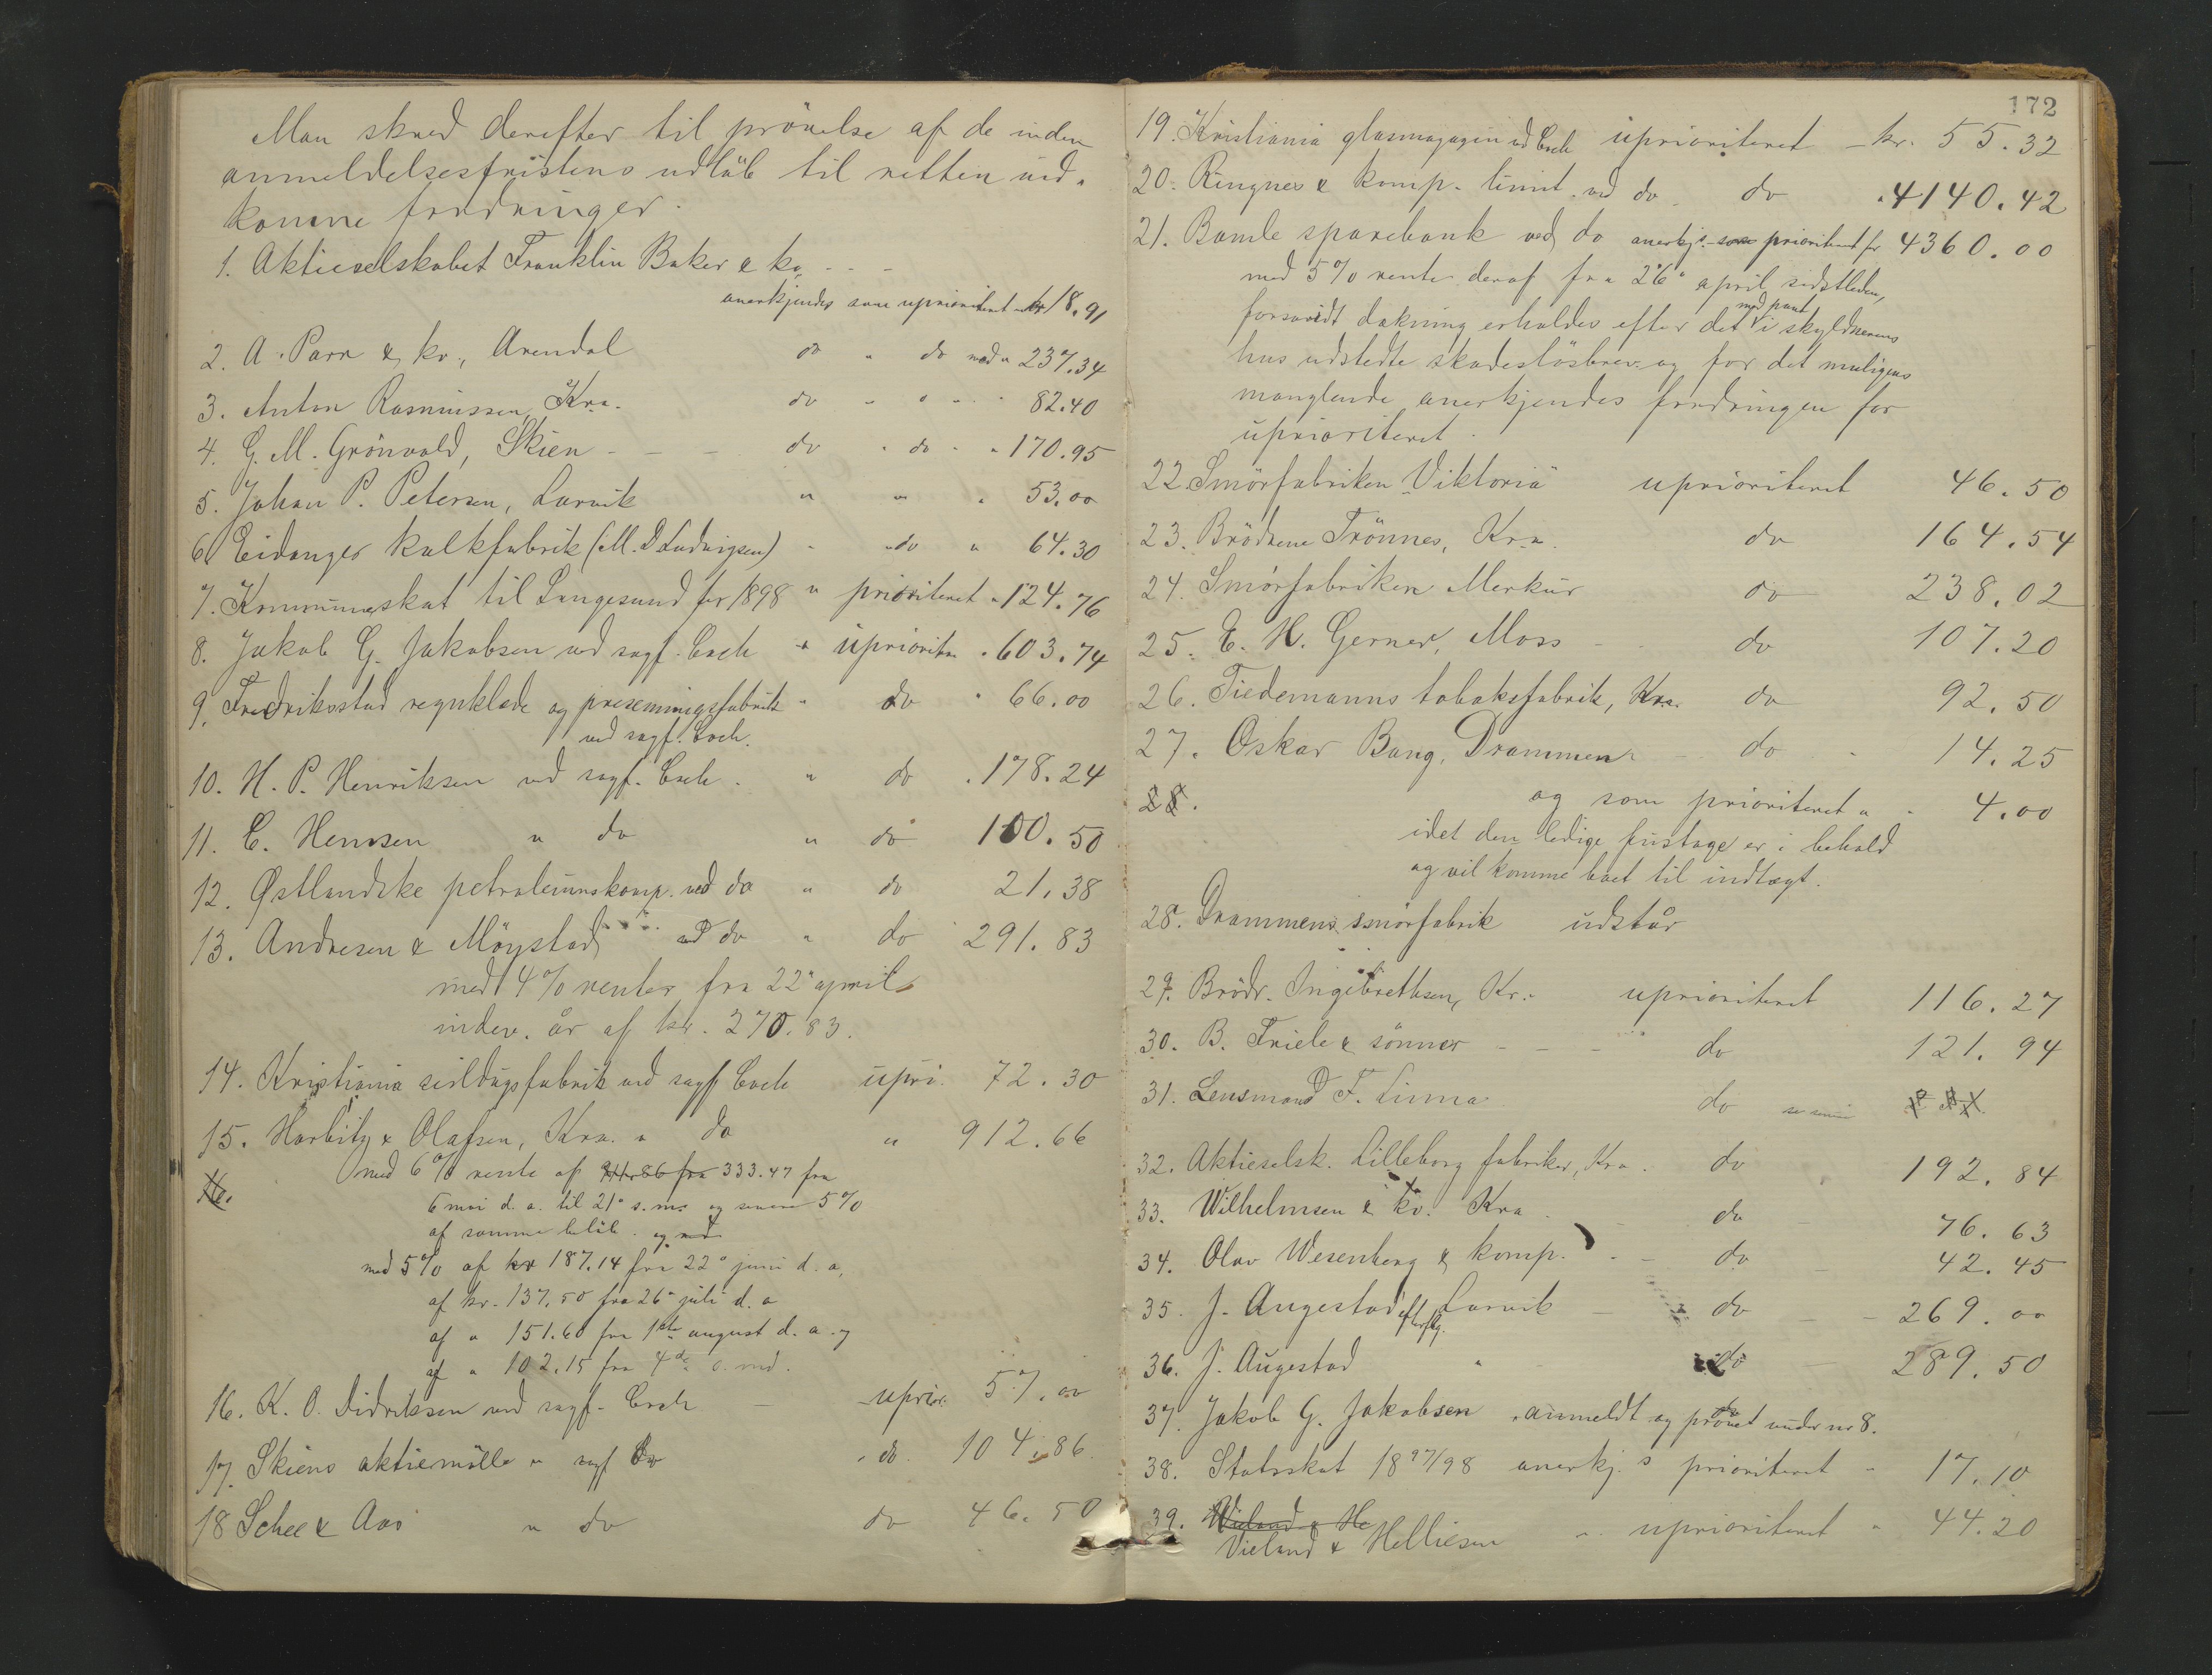 Man skred derefter til prövelse af de inden
anmeldelsesfristens udlöb til retten ind-
komne fordringer.
1. Aktieselskabet Franklin Baker & ko - - -
anerkjendes som uprioriteret med kr 18.91
2. A. Parr & ko., Arendal do " do med " 237.34
3. Anton Rasmussen, Kra. do " " - " 82.40
4. G. M. Grönvold, Skien - - - do " do - " 170.95
5. Johan P. Petersen, Larvik " " " 53.00
6. Eidanger kalkfabrik (M. D Ludvigsen) - " do " 64.30
7. Kommuneskat til Langesund for 1898 " prioriteret " 124.76
8. Jakob G. Jakobsen ved sagf. Coch " uprioriter " 603.74
9. Fredriksstad regnklæde og presenningsfabrik " do " 66.00
ved sagf. Coch.
10. H. P. Henriksen ved sagf. Coch. " do " 178.24
11. C. Hemsen " do " do 100.50
12. Østlandske petroleumskomp. ved do " do 21.38
13. Andresen & Möystad ved do " do 291.83
med 4% renter fra 22" april
indev. år af kr. 270.83.
14. Kristiania seildugsfabrik ved sagf. Coch upri. 72.30
15. Harbitz & Olafsen, Kra. " do " 912.66
16. med 6% rente af 333.47 fra
6 mai d. a. til 21" s. m. og senere 5%
af samme belöb. og med
med 5% af kr 187.14 fra 22" juni d. a.
af kr. 137.50 fra 26" juli d. a
af " 151.60 fra 1ste august d. a. og
af " 102.15 fra 4de s. md.
16. K. O. Didriksen ved sagf. Coch - uprior. 57.00
17. Skiens aktiemölle " sagf do " do. 104.86
18 Schee & Aas " do do 46.50
172
19. Kristiania glasmagasin ved Coch uprioriteret - kr. 55.32
20. Ringnes & komp. limit. ved do. do " 4140.42
21. Bamle sparebank ved do anerkj. som prioriteret for 4360.00
med 5% rente deraf fra 26" april sidstleden,
forsavidt dækning erholdes efter det med pant i skyldnerens
hus udstedte skadeslösbrev og for det muligens
manglende anerkjendes fordringen for
uprioriteret.
22. Smörfabriken "Viktoria" uprioriteret 46.50
23. Brödrene Trönnes, Kra. do 164.54
24. Smörfabriken Merkur do 238.02
25. E. H. Gerner, Moss - do 107.20
26. Tiedemanns tobaksfabrik, Kra. do 92.50
27. Oskar Bang, Drammen - do - 14.25
28. og som prioriteret " - 4.00
idet den ledige fustage er i behold
og vil komme boet til indtægt.
28. Drammens smörfabrik udstår
29. Brödr. Ingebrethsen, Kr.a uprioriteret 116.27
30. B. Friele & sönner - - - do 121.94
31. Lensmand F. Linna do
32. Aktieselsk. Lilleborg fabriker, Kra. do 192.84
33. Wilhelmsen & ko. Kra. do - 76.63
34. Olav Wesenberg & komp. - - do - 42.45
35. J. Augestad efterflg. Larvik - " do - - 269.00
36. J. Augestad " - do - 289.50
37. Jakob G. Jakobsen anmeldt og prövet under no 8.
38. Statsskat 1897/98 anerkj. s prioriteret - 17.10
39. Wieland & He
Vieland & Helliesen " uprioriteret " 44.20